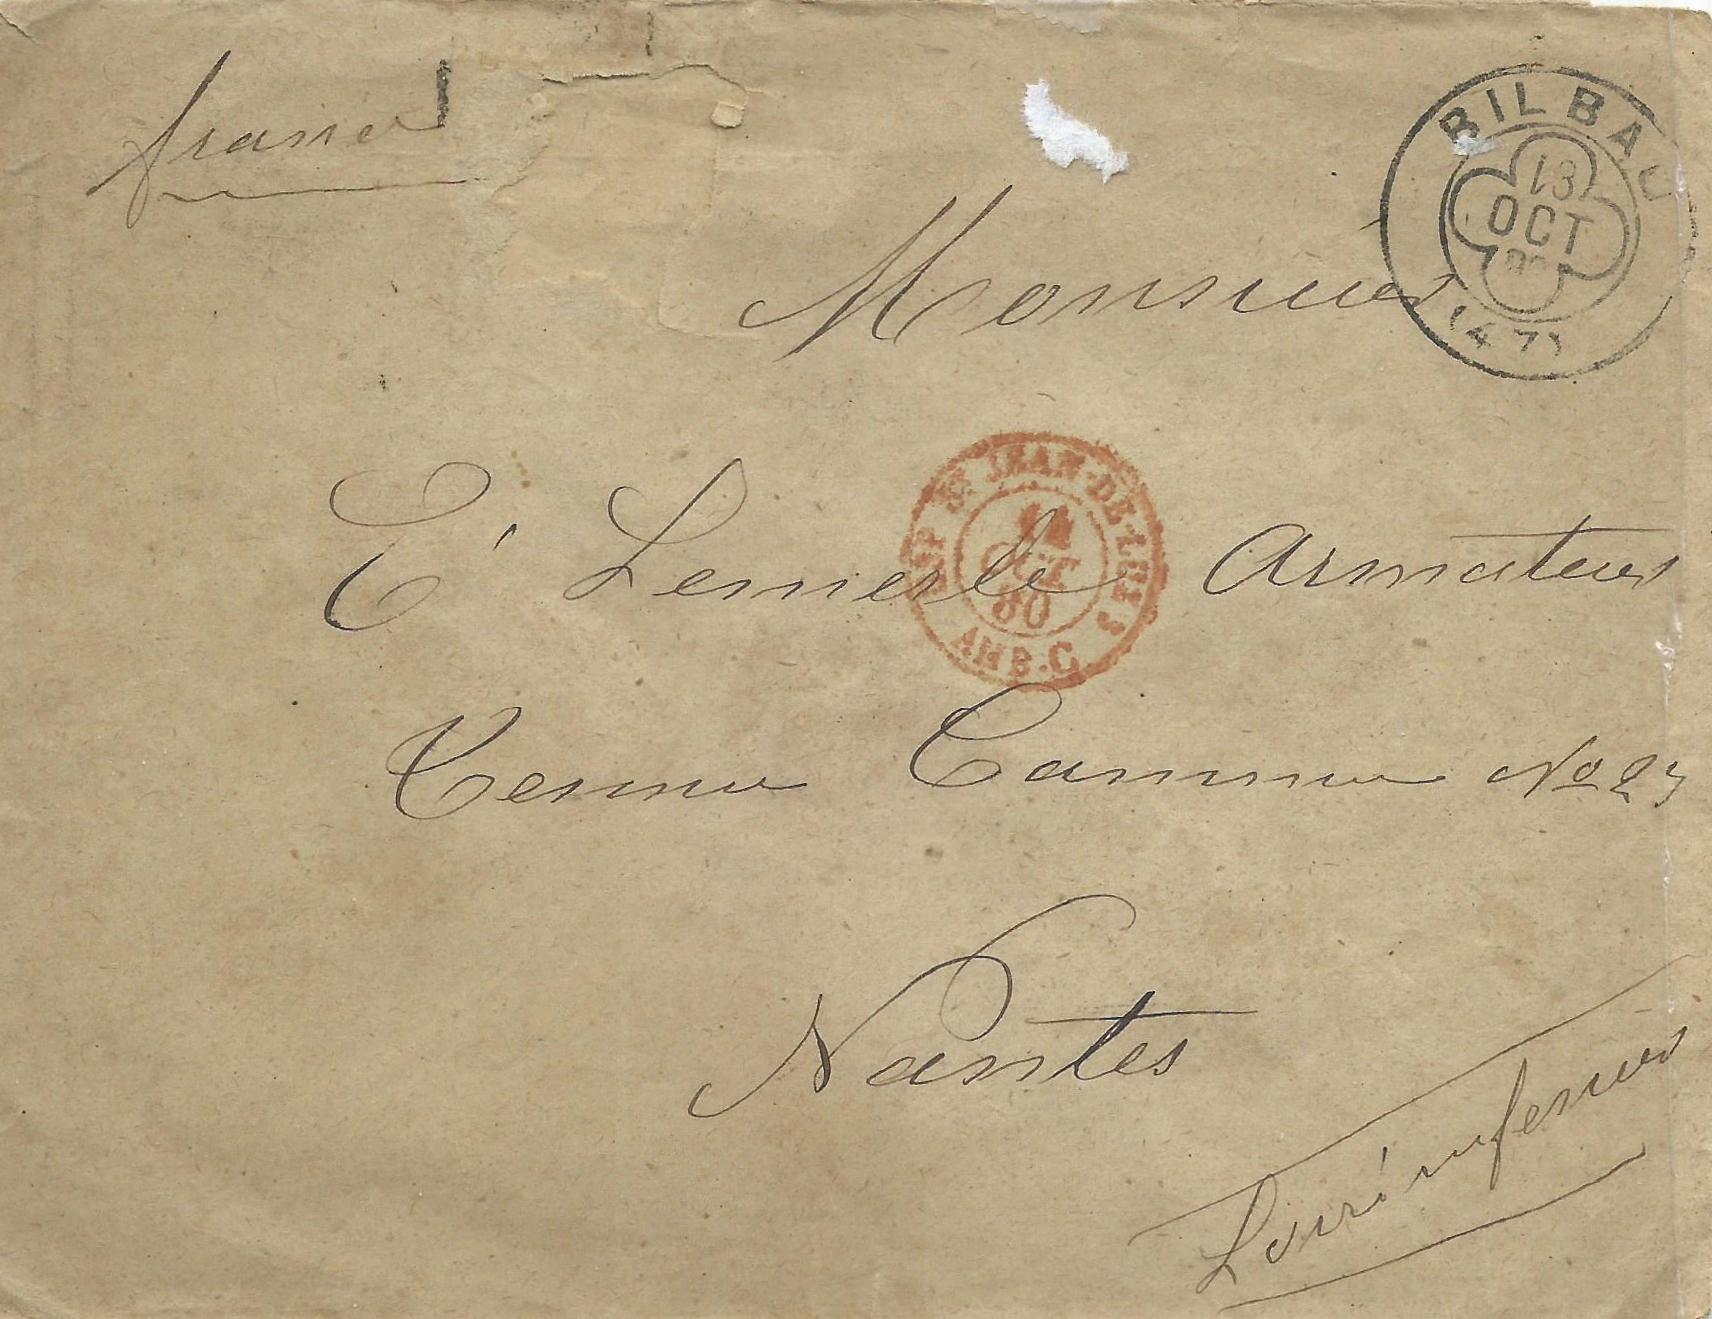 france
BILBAO
13
OCT
80
(47)
Monsieur
ESP ST JEAN-DE-LUZ 3
14
OCT
80
AMB.C.
E Lemerle Armateur
No 23
Nantes
Loire inferieure